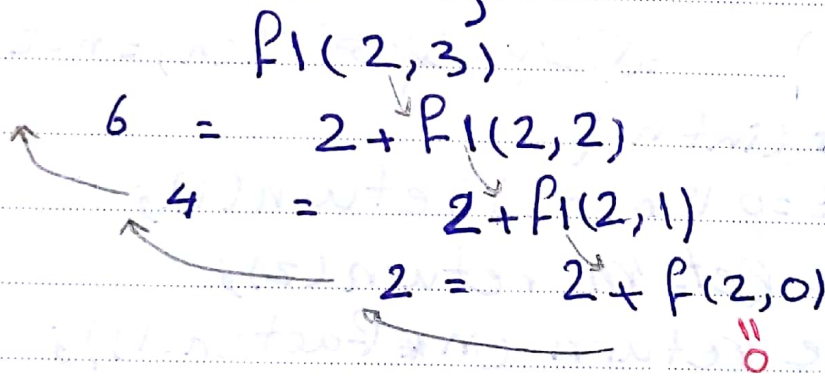 f1(2,3)
6 = 2+f1(2,2)
4 = 2+f1(2,1)
2 = 2+f(2,0)
=
0